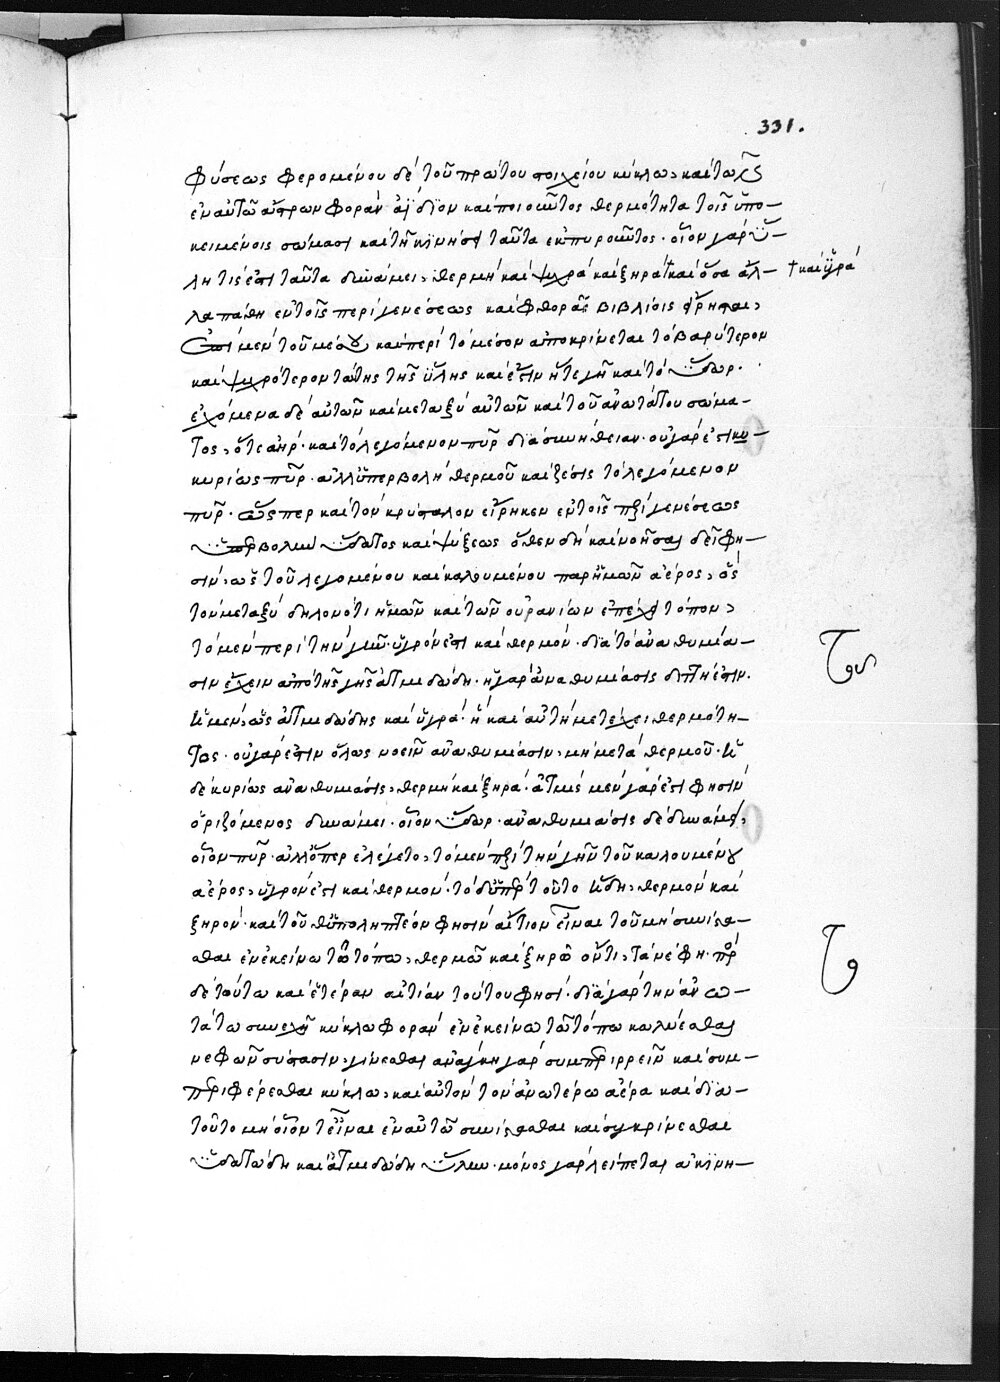 331.
φύσεως φερομένου δὲ τοῦ πρώτου στοιχείου κύκλω, καὶ τῶν
ἐν αὐτῶ ἄστρων φορὰν ἀΐδιον καὶ ποιοῦντος θερμότητα τοῖς ὑπο-
κειμένοις σώμασι καὶ τῆ κινήσει ταῦτα ἐκπυροῦντος. οἷον γὰρ ὕ-
λη τίς ἐστι ταῦτα δυνάμει, θερμὴ καὶ ψυχρὰ καὶ ξηρὰ † καὶ ὅσα ἄλ-
† καὶ ὑγρά
λα πάθη ἐν τοῖς περὶ γενέσεως καὶ φθορᾶς βιβλίοις εἴρηται,
ἐπὶ μὲν τοῦ μέσου καὶ περὶ τὸ μέσον ἀποκρίνεται τὸ βαρύτερον
καὶ ψυχρότερον ταύτης τῆς ὕλης καὶ ἔστιν ἥ τε γῆ καὶ τὸ ὕδωρ.
ἐχόμενα δὲ αὐτῶν καὶ μεταξὺ αὐτῶν καὶ τοῦ ἀνωτάτου σώμα-
τος, ὅ τε ἀὴρ. καὶ τὸ λεγόμενον πῦρ διὰ συνήθειαν. οὐ γάρ ἐστιν
κυρίως πῦρ. ἀλλ' ὑπερβολὴ θερμοῦ καὶ ζέσις τὸ λεγόμενον
πῦρ. ὥσπερ καὶ τὸν κρύσταλον εἴρηκεν ἐν τοῖς περὶ γενέσεως
ὑπερβολὴν ὕδατος καὶ ψύξεως ὅθεν δὴ καὶ νοῆσαι δεῖ φη-
σιν, ὡς τοῦ λεγομένου καὶ καλουμένου παρ' ἡμῶν ἀέρος, ὃς
τὸν μεταξὺ δηλονότι ἡμῶν καὶ τῶν οὐρανίων ἐπέχει τόπον,
τὸ μὲν περὶ τὴν γῆν. ὑγρόν ἐστι καὶ θερμόν. διὰ τὸ ἀναθυμία-
σιν ἔχειν ἀπὸ τῆς γῆς ἀτμιδώδη. ἡ γὰρ ἀναθυμίασις διττή ἐστιν.
ἡ μὲν, ὡς ἀτμιδώδης καὶ ὑγρά. ἣ καὶ αὐτὴ μετέχει θερμότη-
τος. οὐ γάρ ἐστιν ὅλως νοεῖν ἀναθυμίασιν, μὴ μετὰ θερμοῦ. ἡ
δὲ κυρίως ἀναθυμίασις, θερμὴ καὶ ξηρά. ἀτμὶς μὲν γάρ ἐστι φησὶν
ὁριζόμενος δυνάμει. οἷον ὕδωρ. ἀναθυμίασις δὲ δυνάμει,
οἷον πῦρ. ἀλλ' ὅπερ ἐλέγετο, τὸ μὲν περὶ τὴν γῆν τοῦ καλουμένου
ἀέρος, ὑγρόν ἐστι καὶ θερμόν. τὸ δ' ὑπὲρ τοῦτο ἤδη, θερμὸν καὶ
ξηρόν. καὶ τοῦθ' ὑποληπτέον φησὶν αἴτιον εἶναι τοῦ μὴ συνίστα-
σθαι ἐν ἐκείνω τῶ τόπω, θερμῶ καὶ ξηρῶ ὄντι, τὰ νέφη. πρὸς
δὲ τούτω καὶ ἑτέραν αἰτίαν τούτου φησί. διὰ γὰρ τὴν ἀνω-
τάτω συνεχῆ κύκλω φορὰν ἐν ἐκείνω τῶ τόπω κωλύεσθαι
νεφῶν σύστασιν, γίνεσθαι ἀνάγκη γὰρ συμπεριρρεῖν καὶ συμ-
περιφέρεσθαι κύκλω, καὶ αὐτὸν τὸν ἀνωτέρω ἀέρα καὶ διὰ-
τοῦτο μὴ οἷόν τ' εἶναι ἐν αὐτῶ συνίστασθαι καὶ συγκρίνεσθαι
ὑδατώδη καὶ ἀτμιδώδη ὕλην. μόνος γὰρ λείπεται ἀκίνη-